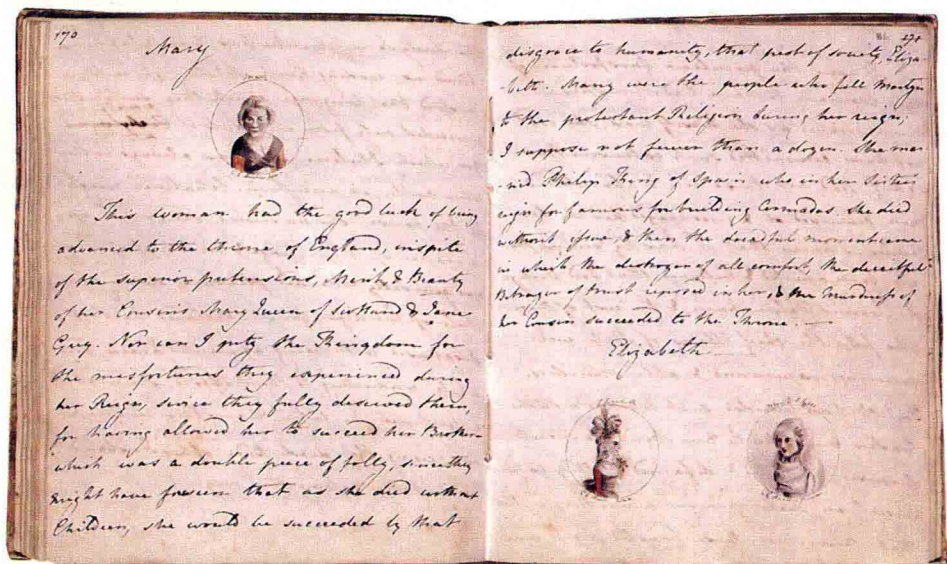 170
Mary
This woman had the good luck of being
advanced to the throne of England, inspite
of the superior pretensions, Merit, & Beauty
of her Cousins Mary Queen of Scotland & Jane
Grey. Nor can I pity the Kingdom for
the misfortunes they experienced during
her Reign, since they fully deserved them,
for having allowed her to succeed her Brother
which was a double peece of folly, since they
might have foreseen that as she died without
Children, she would be succeeded by that
171
disgrace to humanity, that pest of society, Eliza-
-beth. Many were the people who fell Martyrs
to the protestant Religion during her reign;
I suppose not fewer than a dozen. She mar-
-ried Philip King of Spain who in her Sisters
reign for famous for building Armadas. She died
without issue, & then the dreadful moment came
in which the destroyer of all comfort, the deceitful
Betrayer of trust reposed in her, & the Murderess of
her Cousin succeeded to the Throne.
Elizabeth